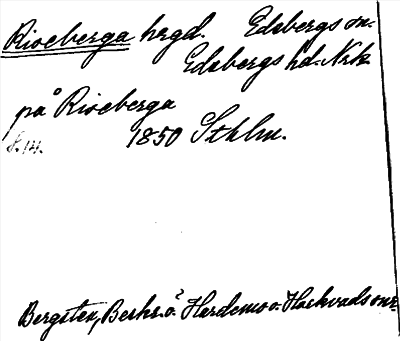 Riseberga hrgd. Edsbergs sn.
Edsbergs hd. Nrk
på Riseberga
s. 14. 1850 Sthlm.
Bergsten, Beskr. ö. Hardemo o. Hackvads snr